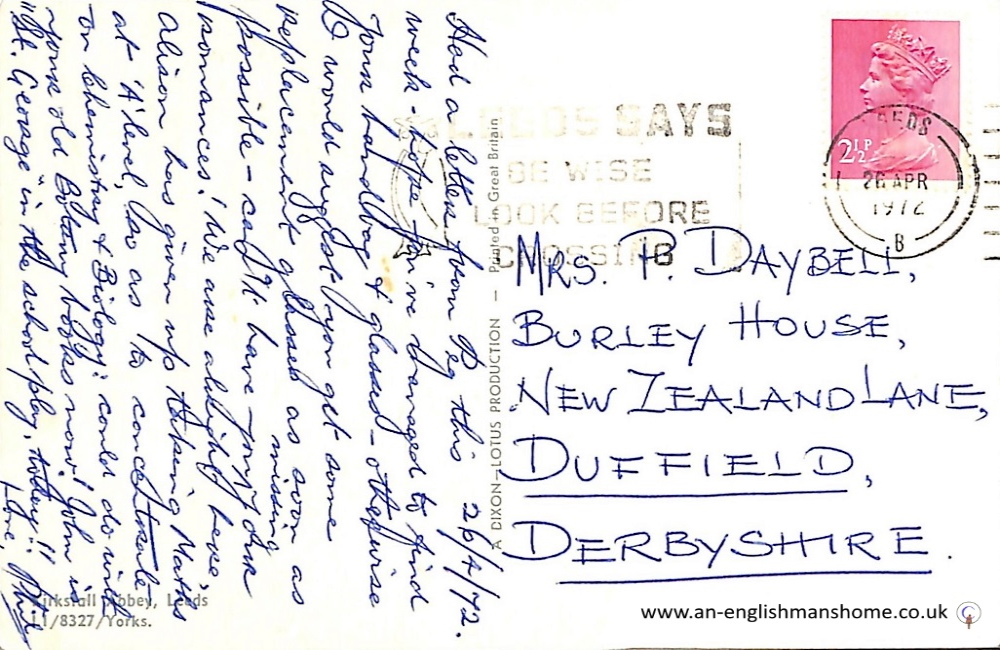 26/4/72.
Had a letter from Peg this
week - hope you've managed to find
your handbag & glasses - otherwise
I would suggest you get some
replacement glasses as soon as
possible - can't have you missing
your
performances! We are alright here,
Alison has given up taking Maths
at 'A' level, so as to concentrate
on Chemistry & Biology: could do with
your old Botany books now! John is
"St. George" in the school play, today!!
Love,
A DIXON-LOTUS PRODUCTION — Printed in Great Britain
LEEDS SAYS
BE WISE
LOOK BEFORE
CROSSING
2½P
LEEDS
26 APR
1972
B
MRS. P. DAYBELL,
BURLEY HOUSE,
NEW ZEALAND LANE,
DUFFIELD,
DERBYSHIRE.
Kirkstall Abbey, Leeds
L1/8327/Yorks.
www.an-englishmanshome.co.uk